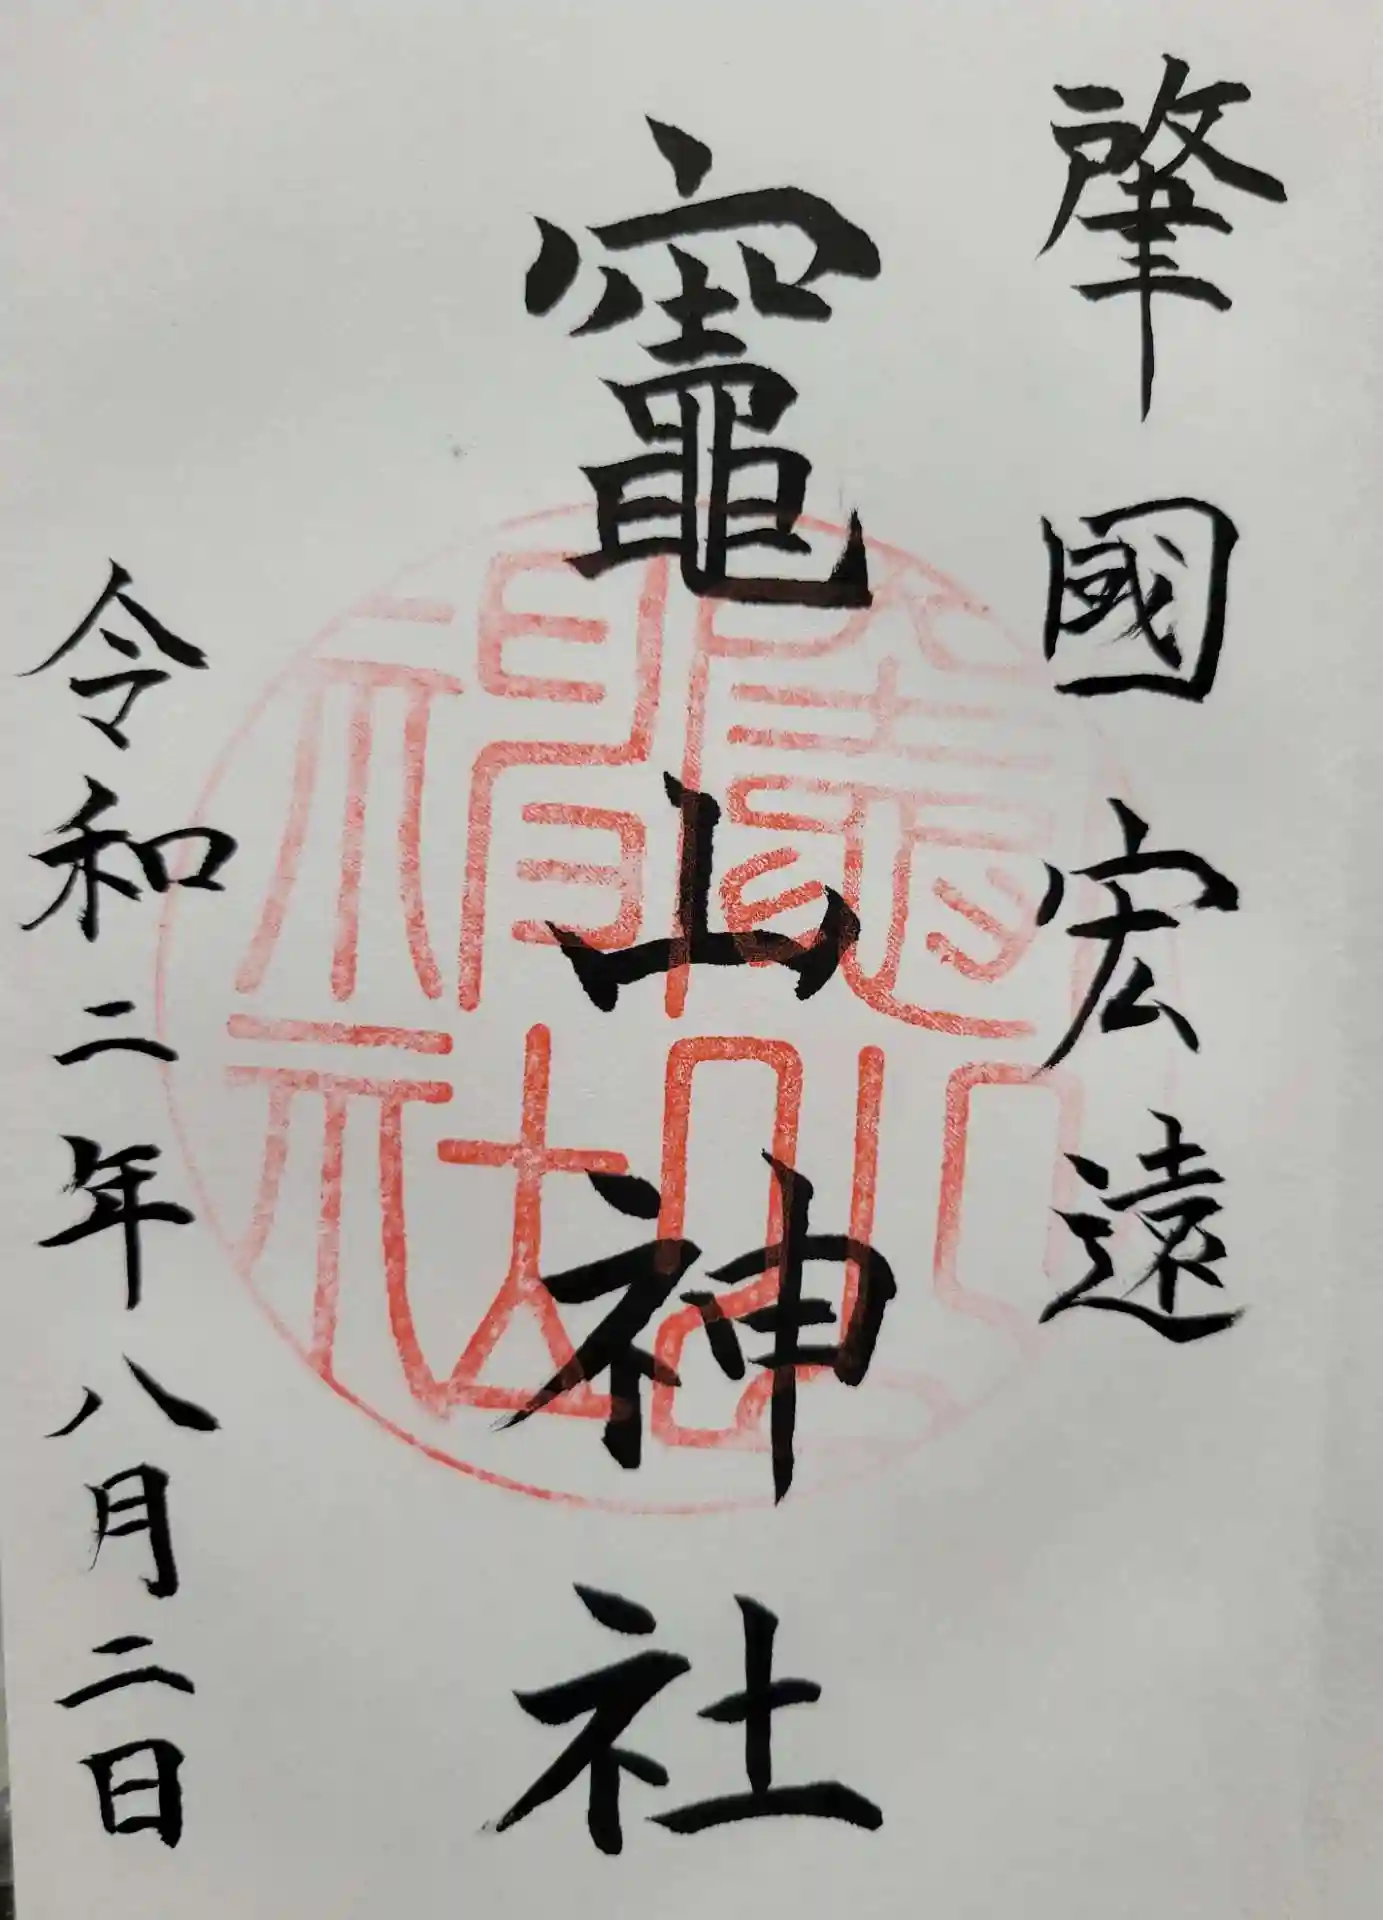 肇國宏遠
竈山神社
令和二年八月二日